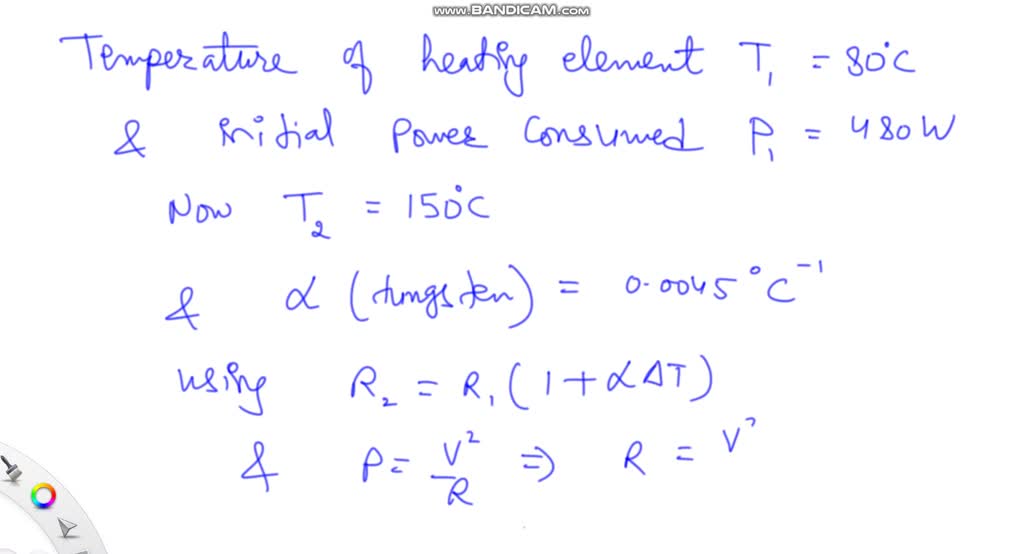 www.BANDICAM.com
Temperature of heating element T₁ = 80°C
& initial Power Consumed P₁ = 480W
Now T₂ = 150°C
& α (tungsten) = 0.0045 °C⁻¹
using R₂ = R₁ (1 + α ΔT)
& P = V²/R ⇒ R = V²